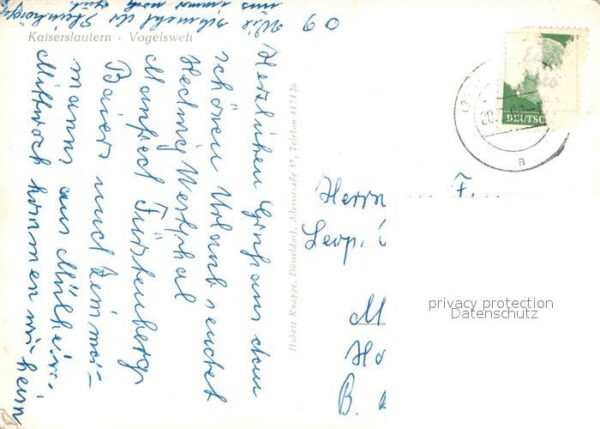 Kaiserslautern - Vogelsweh
60
Herzlichen Gruß aus dem
schönen Urlaub sendet
Hedwig Westphal
Manfred Fürstenberg
Baiers und Heimsoi-
manns aus Mülheim.
Mittwoch kommen wir heim
Hubert Knappe, Düsseldorf, Adersstraße 57, Telefon
20.
DEUTSC
a
Herrn F.
Leop.
M
Ho
B.
privacy protection
Datenschutz